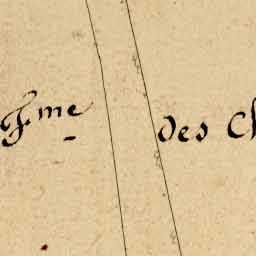 F.me des Ch